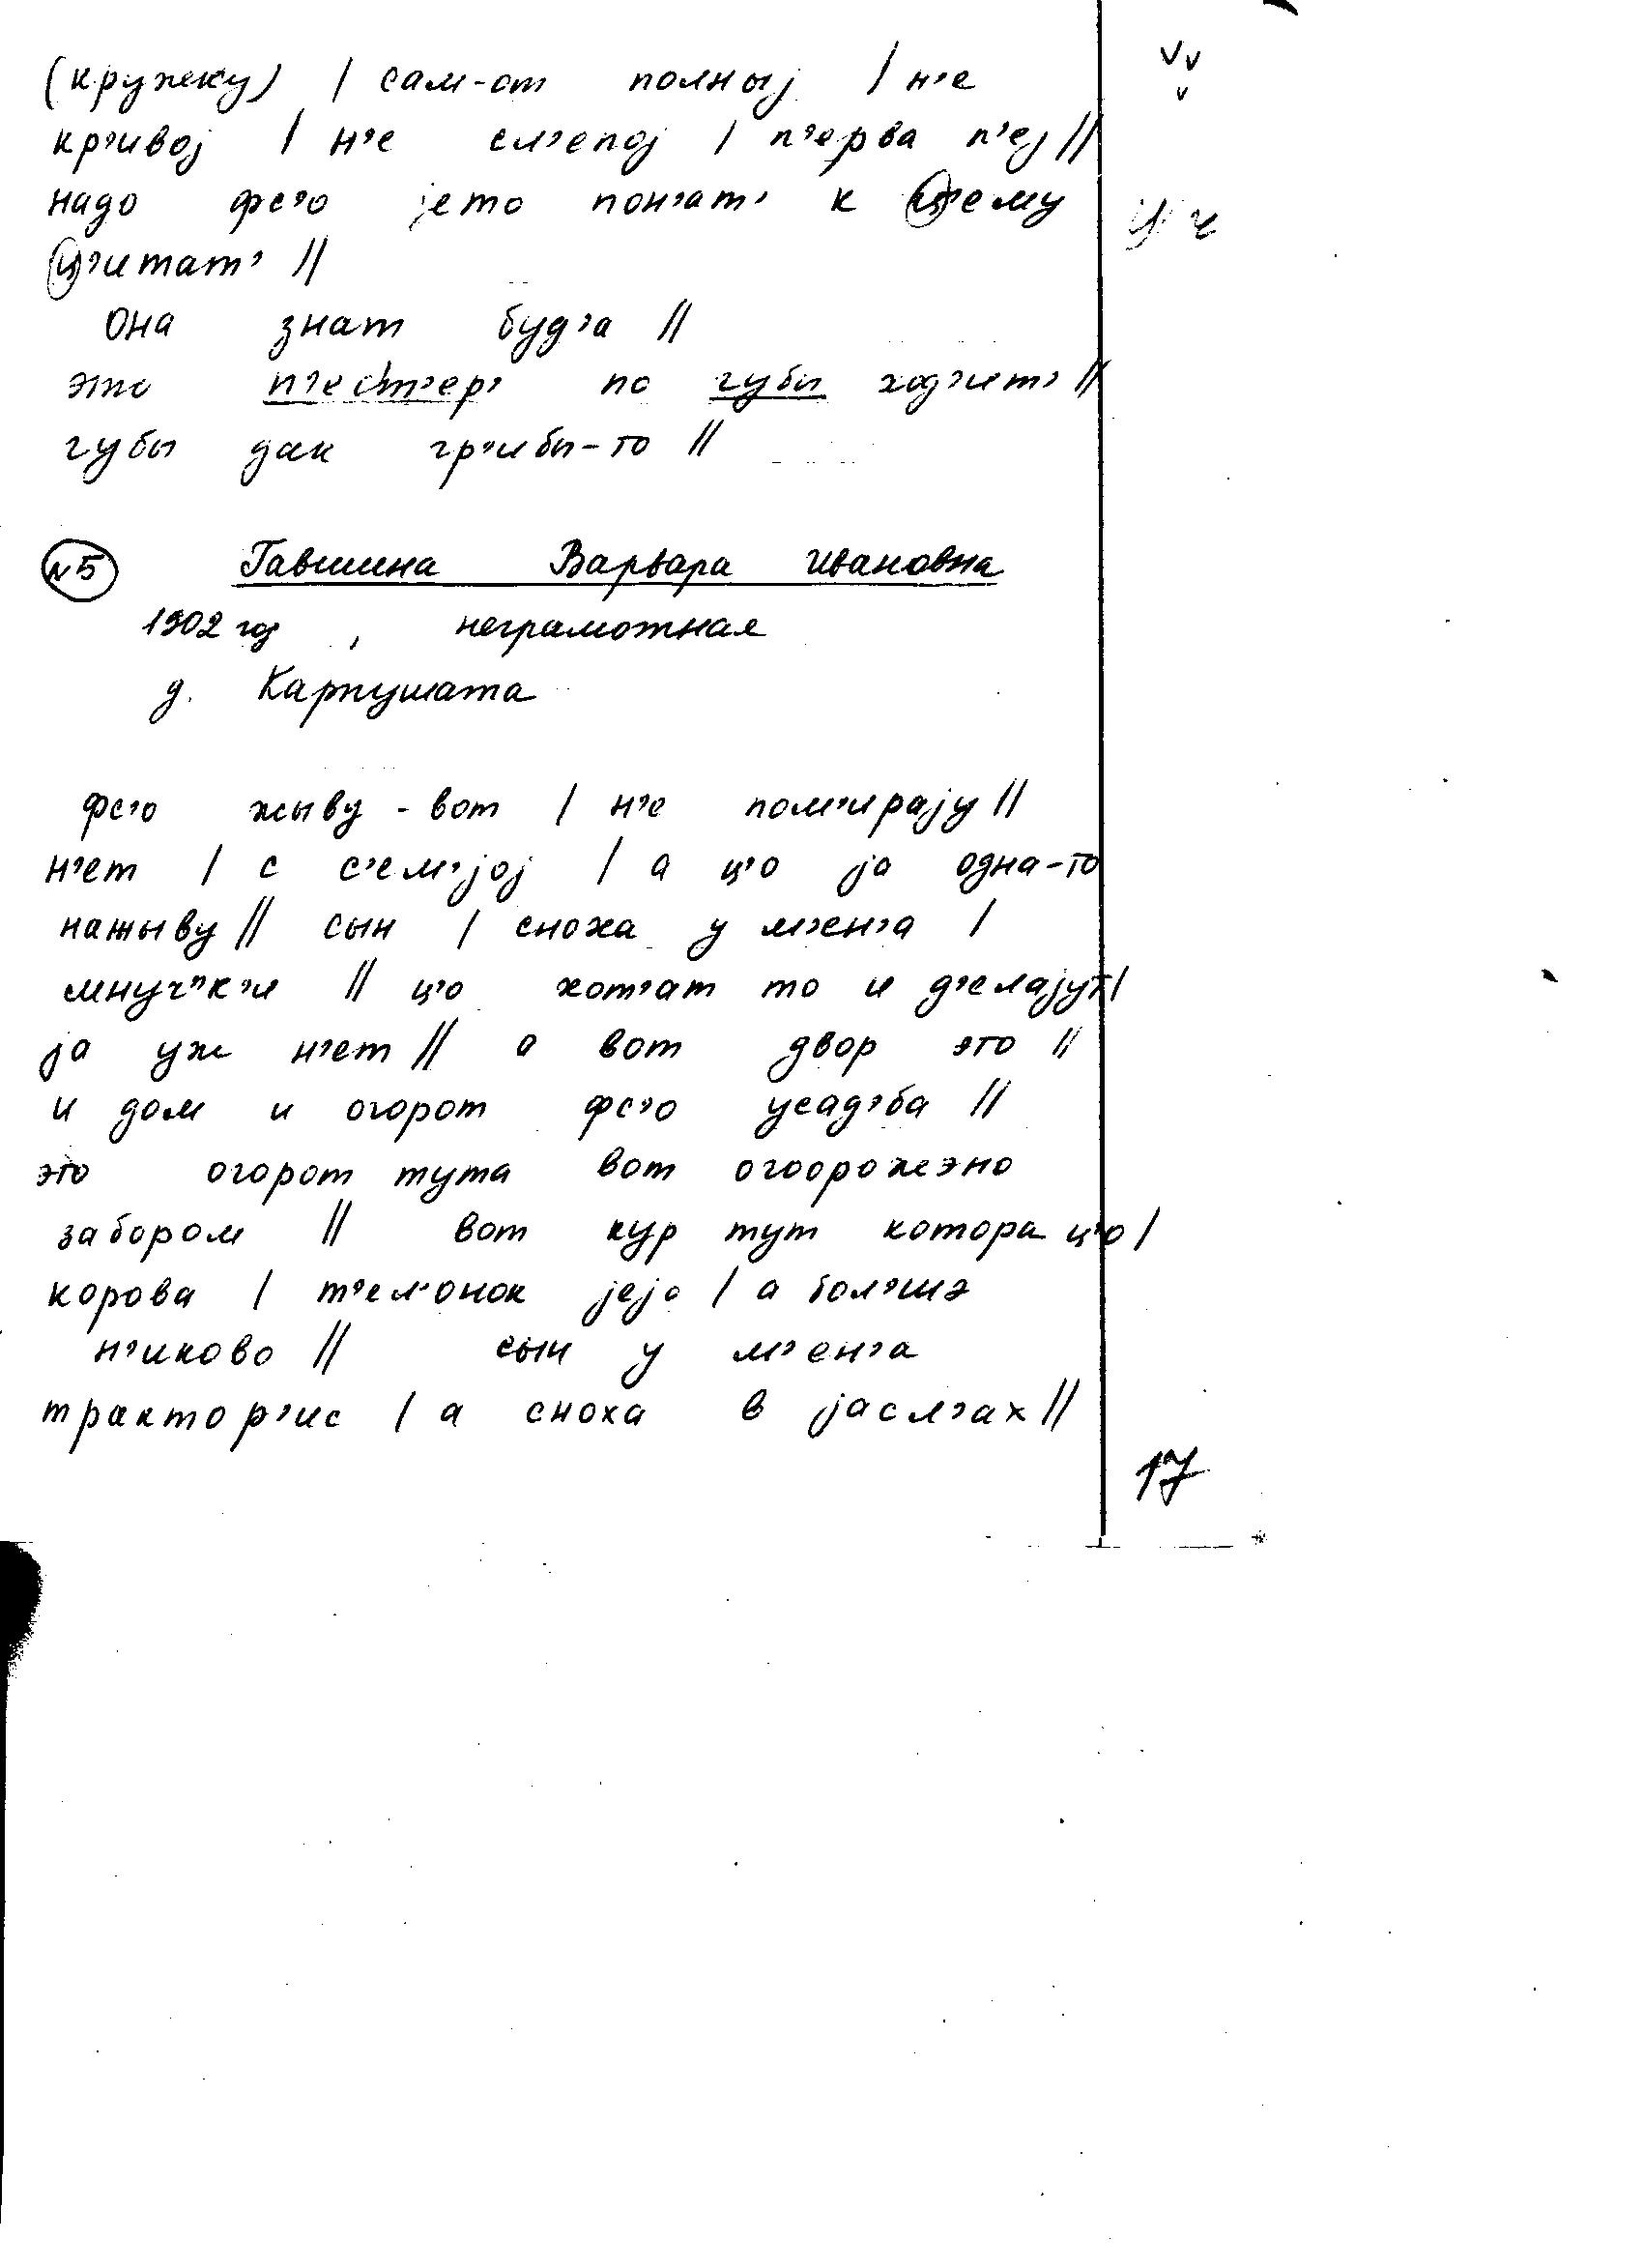 (кружку) / сам-от полныј / н'е
кр'ивој / н'е сл'епој / п'ерва п'еј //
надо фс'о јето пон'ат' к ц'ему
ц'итат' //
она знат буд'а //
это п'ест'ер' по губы ход'ит' //
губы дак гр'ибы-то //
№5 Гавшина Варвара Ивановна
1902 год, неграмотная
д. Карпушата
фс'о жыву-вот / н'е пом'ирају //
н'ет / с с'ем'јој / а ц'о ја одна-то
нажыву // сын / сноха у м'ен'а /
мнуч'к'и // ц'о хот'ат то и д'елајут /
ја уж н'ет // а вот двор это //
и дом и огорот фс'о усад'ба //
это огорот тута вот огоорожэно
забором // вот кур тут котора ц'о /
корова / т'ел'онок јејо / а бол'шэ
н'иково // сын у м'ен'а
трактор'ис / а сноха в јасл'ах //
17